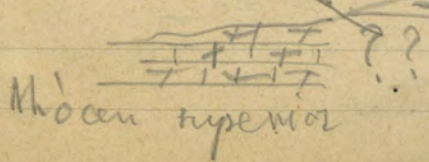 ??
Miòcen superior